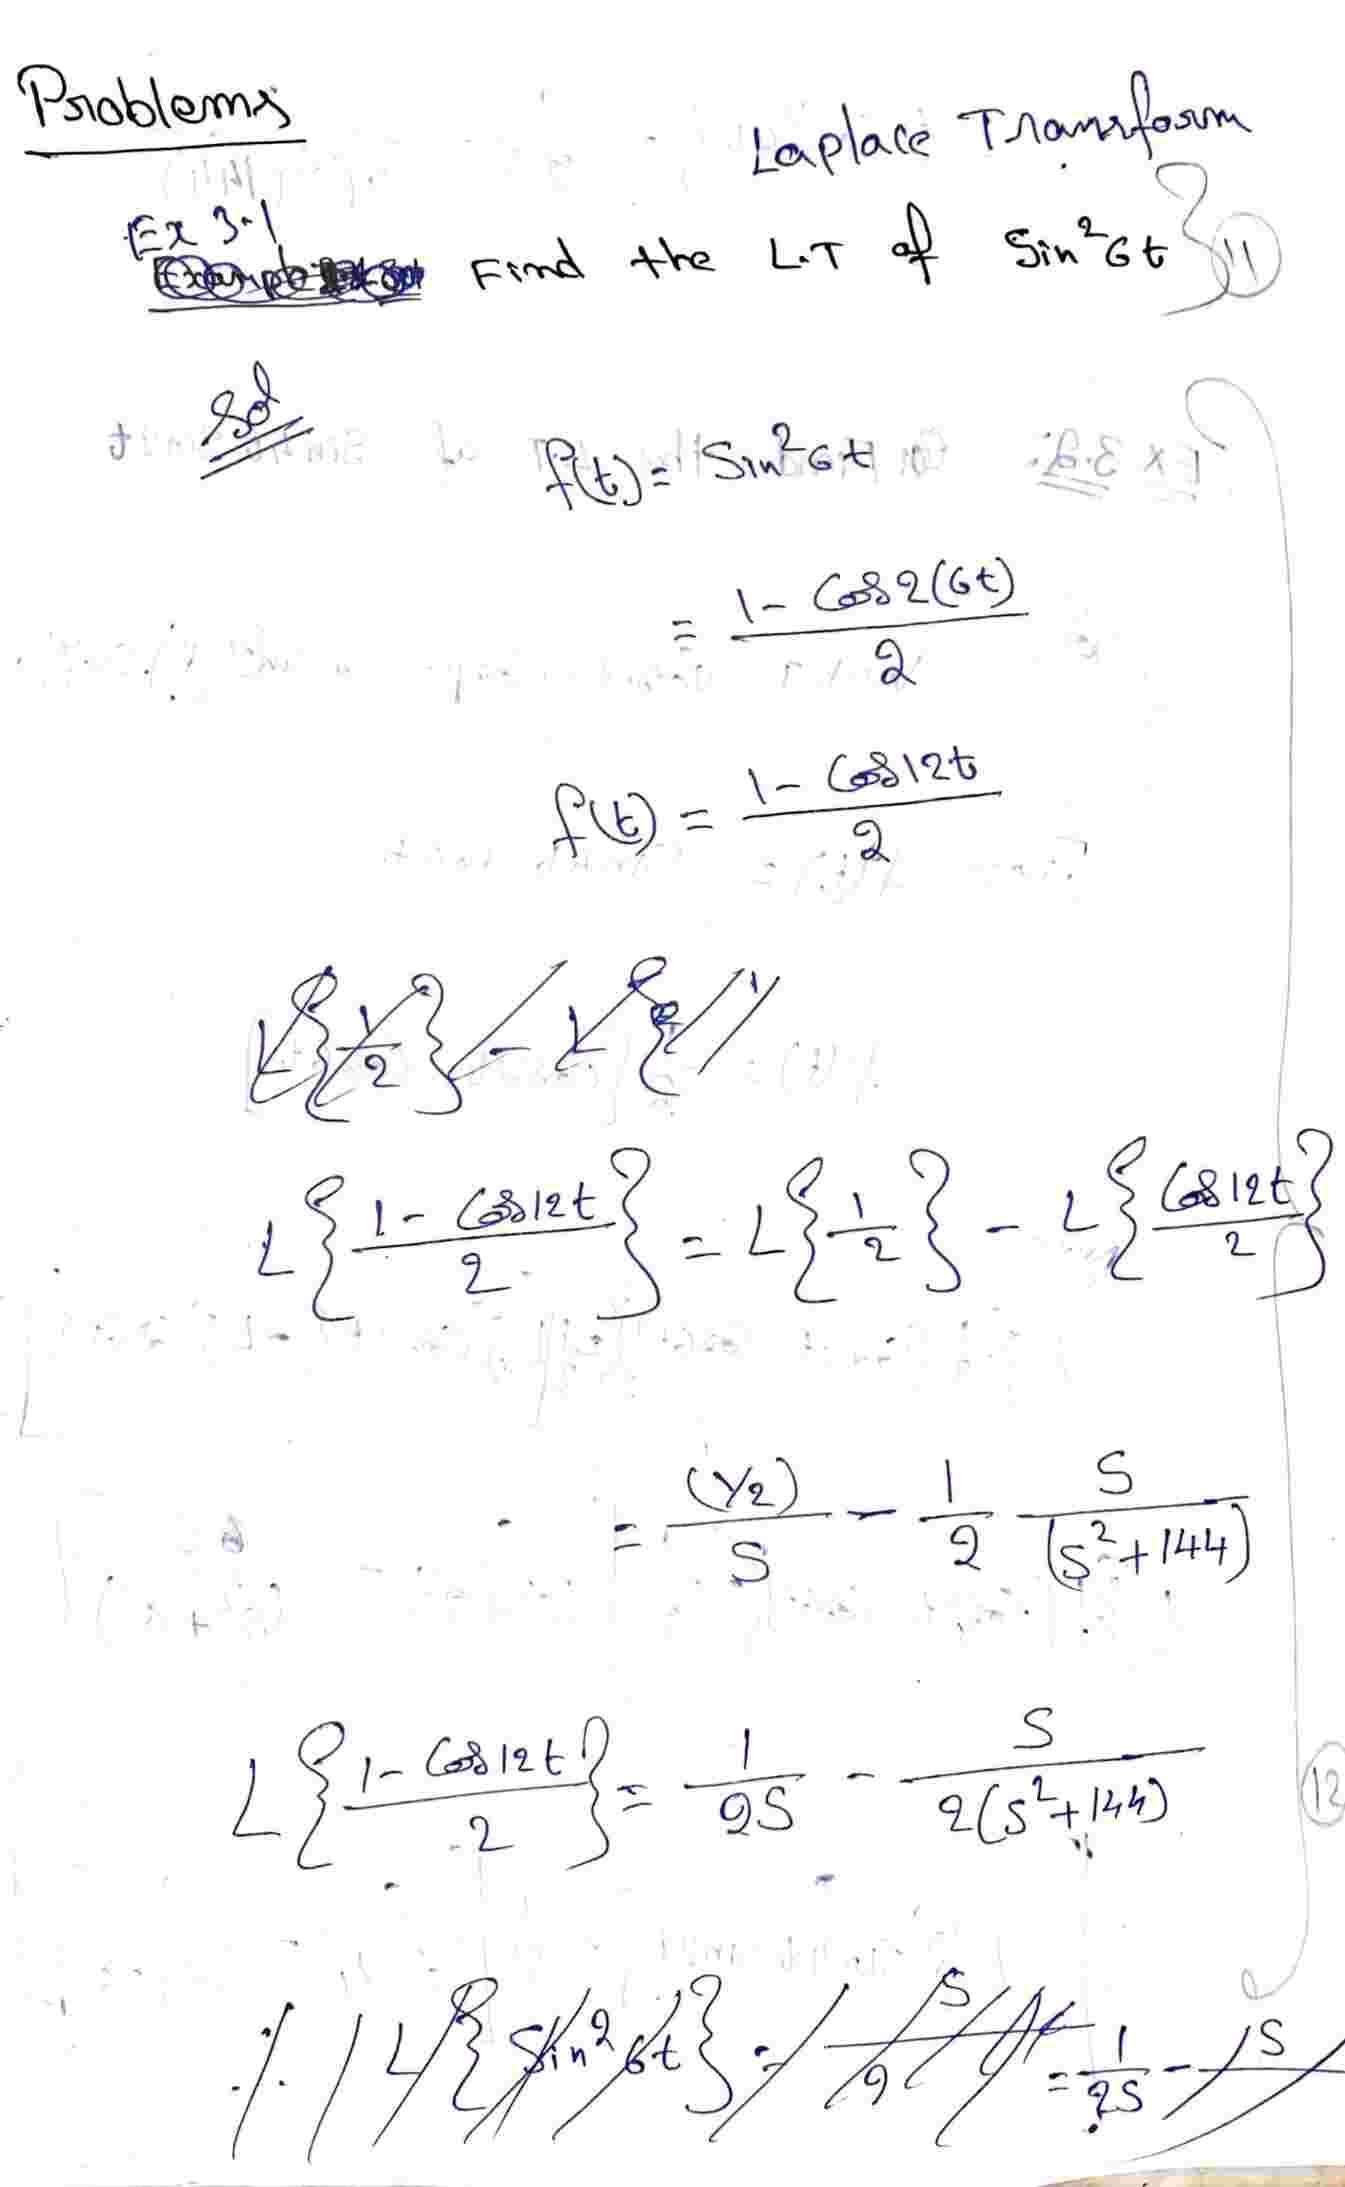 Problems
Laplace Transform
Ex 3.1
Find the L.T of Sin²6t
11
Sol
f(t) = Sin²6t
= 1 - Cos2(6t) / 2
f(t) = 1 - Cos12t / 2
L{1/2} - L{
L{1 - Cos12t / 2} = L{1/2} - L{Cos12t / 2}
= (1/2) / S - 1/2 S / (S² + 144)
L{1 - Cos12t / 2} = 1 / 2S - S / 2(S² + 144)
12
L{Sin²6t} = S / 2 = 1 / 2S - S